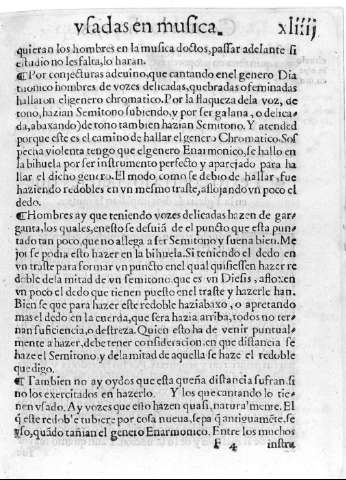 vsadas en musica. xliiij
quieran los hombres en la musica doctos, passar adelante si
estudio no les falta, lo haran.
¶ Por conjecturas adeuino, que cantando en el genero Dia
thonico hombres de vozes delicadas, quebradas o feminadas
hallaron el genero chromatico. Por la flaqueza dela voz, de
tono, hazian Semitono subiendo, y por ser galana, o delica-
da, abaxando) de tono tambien hazian Semitono. Y atended
porque este es el camino de hallar el genero Chromatico. Sos
pecha violenta tengo que el genero Enarmonico, se hallo en
la bihuela por ser instrumento perfecto y aparejado para ha
llar el dicho genero. El modo como se debio de hallar, fue
haziendo redobles en vn mesmo traste, afloxando vn poco el
dedo.
¶ Hombres ay que teniendo vozes delicadas hazen de gar-
ganta, los quales, en esto se desuiã de el puncto que esta pun-
tado tan poco, que no allega a ser Semitono y suena bien. Me
jor se podia esto hazer en la bihuela. Si teniendo el dedo en
vn traste para formar vn puncto en el qual quisiessen hazer re
doble dela mitad de vn semitono, que es vn Diesis, aflo: en
vn poco el dedo que tienen puesto en el traste y hazerle han.
Bien se que para hazer este redoble hazia baxo, o apretando
mas el dedo en la cuerda, que sera hazia arriba, todos no ter-
nan suficiencia, o destreza. Quien esto ha de venir puntual-
mente a hazer, debe tener consideracion, en que distancia se
haze el Semitono, y dela mitad de aquella se haze el redoble
que digo.
¶ Tambien no ay oydos que esta queña distancia sufran, si
no los exercitados en hazerlo. Y los que cantando lo tie-
nen vsado. Ay vozes que esto hazen quasi, naturalmente. El
q̃ este redoble tubiere por cosa nueua, sepa q̃ antiguamẽte, se
vso, quãdo tañian el genero Enarmonico. Entre los muchos
F 4 instru